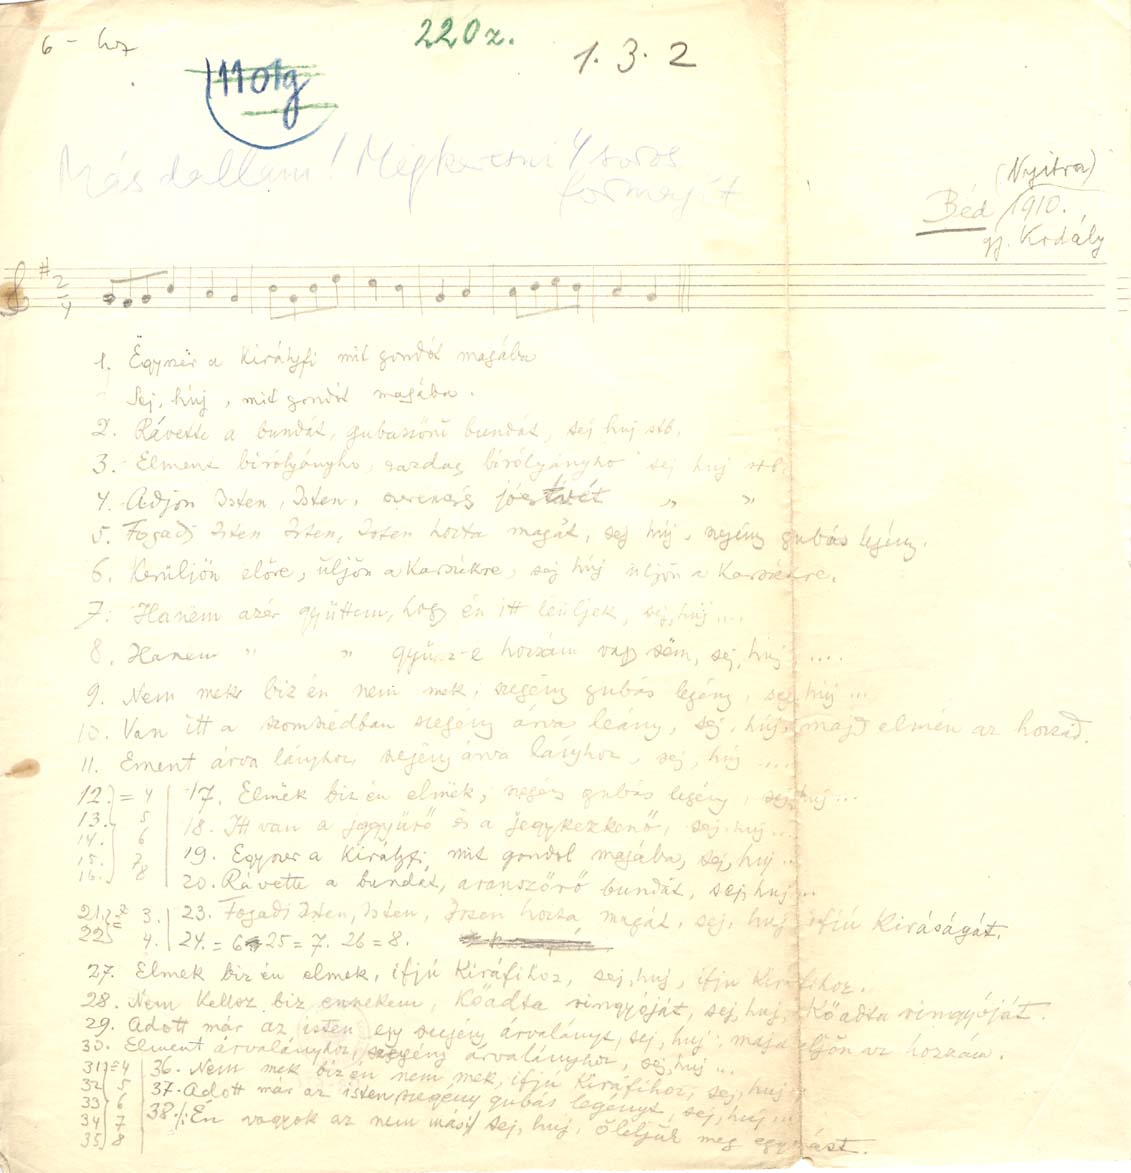 6 - hoz
220z.
1. 3. 2
1101g
Más dallam! Megkeresni 4 soros
formáját
(Nyitra)
Béd 1910.
gy. Kodály
2
4
1. Ëgyszër a Királyfi mit gondót magába
Sej, húj, mit gondót magába.
2. Rávette a bundát, gubaszőrű bundát, sej huj stb.
3. Elment bírólyányho, gazdag bírólyányho sej huj stb.
4. Adjon Isten, Isten, szerencsés jó estvét " "
5. Fogadj Isten Isten, Isten hozta magát, sej húj, szegény gubás legény.
6. Kerüljön előre, üljön a Karszékre, sej húj üljön a Karszékre.
7. Hanem azér gyüttem, hogy én itt leüljek, sej, húj....
8. Hanem " " gyüsz-e hozzám vagy sëm, sej, húj ....
9. Nem mek biz én nem mek, szegény gubás legény, sej, húj ...
10. Van itt a szomszédban szegény árva leány, sej, húj, majd elmén az hozzád.
11. Ement árva lányhoz, szegény árva lányhoz, sej, húj ....
12. = 4 17. Elmëk biz én elmëk, szegény gubás legény, sej, huj...
13. 5 18. Itt van a jggyűrő és a jegykezkenő, sej. huj...
14. 6
15. 7 19. Egyszer a Királyfi mit gondol magába, sej, huj ..
16. 8 20. Rávette a bundát, aranszőrő bundát, sej, huj...
21. = 2 3. 23. Fogadj Isten, Isten, Isten hozta magát, sej, huj ifjú Kiráságát.
22 4. 24. = 6 25 = 7. 26 = 8.
27. Elmek biz én elmek, ifjú Kiráfihoz, sej, huj, ifju Kiráfihoz.
28. Nem Kellsz biz ennekem, Kőadta ringyóját, sej, huj, Kőadta ringyóját.
29. Adott már az isten egy szegény árvalányt, sej, huj, majd eljön az hozzám.
30. Elment árvalányhoz, szegény árvalányhoz, sej, huj ...
31 = 4 36. Nem mek biz én nem mek, ifjú Kiráfihoz, sej, huj...
32 5 37. Adott már az isten szegény gubás legényt, sej, huj...
33 6 38. /: Én vagyok az nem más :/ sej, huj, öleljük meg egymást.
34 7
35 8